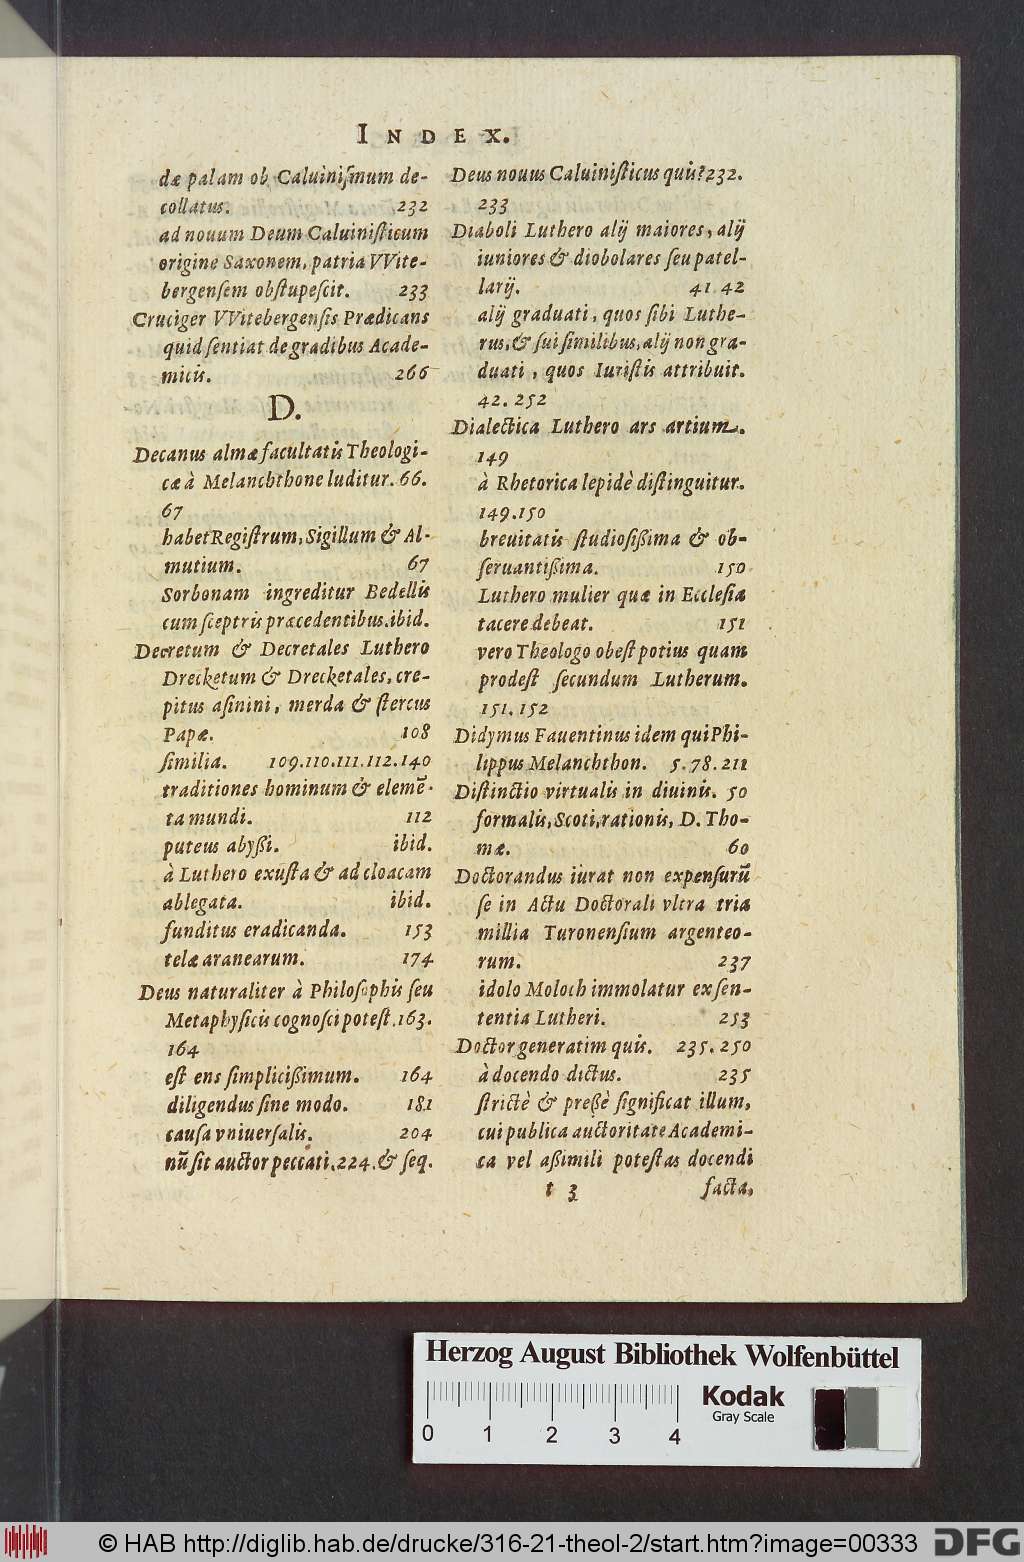 INDEX.
dæ palam ob Caluiniſmum de-
collatus. 232
ad nouum Deum Caluiniſticum
origine Saxonem, patria VVite-
bergenſem obſtupeſcit. 233
Cruciger VVitebergenſis Prædicans
quid ſentiat de gradibus Acade-
micis. 266
D.
Decanus almæ facultatis Theologi-
cæ à Melanchthone luditur. 66.
67
habet Regiſtrum, Sigillum & Al-
mutium. 67
Sorbonam ingreditur Bedellis
cum ſceptris præcedentibus. ibid.
Decretum & Decretales Luthero
Drecketum & Drecketales, cre-
pitus aſinini, merda & ſtercus
Papæ. 108
ſimilia. 109.110.111.112.140
traditiones hominum & elemē-
ta mundi. 112
puteus abyßi. ibid.
à Luthero exuſta & ad cloacam
ablegata. ibid.
funditus eradicanda. 153
telæ aranearum. 174
Deus naturaliter à Philoſophis ſeu
Metaphyſicis cognoſci poteſt. 163.
164
eſt ens ſimplicißimum. 164
diligendus ſine modo. 181
cauſa vniuerſalis. 204
nū ſit auctor peccati. 224. & ſeq.
Deus nouus Caluiniſticus quis? 232.
233
Diaboli Luthero alij maiores, alij
iuniores & diobolares ſeu patel-
larij. 41. 42
alij graduati, quos ſibi Luthe-
rus, & ſui ſimilibus, alij non gra-
duati, quos Iuriſtis attribuit.
42. 252
Dialectica Luthero ars artium.
149
à Rhetorica lepidè diſtinguitur.
149.150
breuitatis ſtudioſißima & ob-
ſeruantißima. 150
Luthero mulier quæ in Eccleſia
tacere debeat. 151
vero Theologo obeſt potius quam
prodeſt ſecundum Lutherum.
151. 152
Didymus Fauentinus idem qui Phi-
lippus Melanchthon. 5. 78. 211
Diſtinctio virtualis in diuinis. 50
formalis, Scoti, rationis, D. Tho-
mæ. 60
Doctorandus iurat non expenſurū
ſe in Actu Doctorali vltra tria
millia Turonenſium argenteo-
rum. 237
idolo Moloch immolatur ex ſen-
tentia Lutheri. 253
Doctor generatim quis. 235. 250
à docendo dictus. 235
ſtrictè & preßè ſignificat illum,
cui publica auctoritate Academi-
ca vel aßimili poteſtas docendi
t 3 facta,
Herzog August Bibliothek Wolfenbüttel
Kodak
Gray Scale
0 1 2 3 4
© HAB http://diglib.hab.de/drucke/316-21-theol-2/start.htm?image=00333
DFG